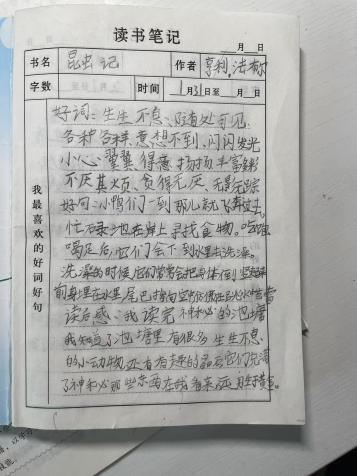 读书笔记
月 日
书名 昆虫记 作者 亨利.法布尔
字数 时间 1月31日至 月 日
我最喜欢的好词好句
好词:生生不息、随处可见、
各种各样、意想不到、闪闪发光
小心翼翼、得意扬扬、丰富多彩
不厌其烦、贪得无厌、无影无踪
好句:小鸭们一到那儿就飞奔过去
忙碌地在岸上寻找食物。吃饱
喝足后,它们会下到水里去洗澡。
洗澡的时候,它们常常会把身体倒竖起来
前身埋在水里,尾巴指向空中
读后感:我读完《神秘的池塘》
我知道了池塘里有很多生生不息
的小动物,还有有趣的昆虫它们充满
了神秘那些东西在我看来,